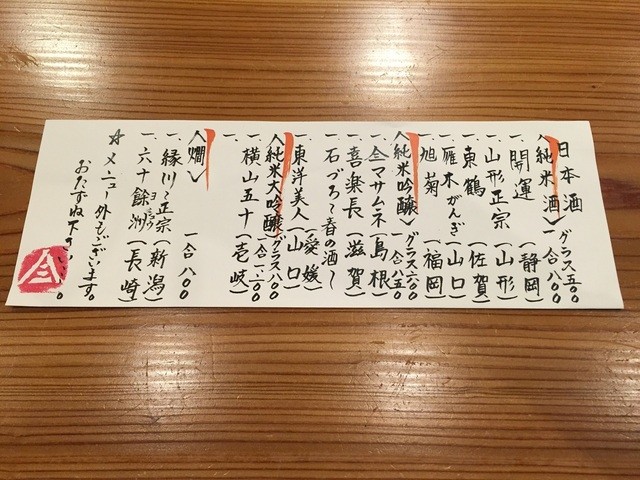 日本酒
〈純米酒〉グラス五〇〇 一合八〇〇
一、開運(静岡)
一、山形正宗(山形)
一、東鶴(佐賀)
一、雁木がんぎ(山口)
一、旭菊(福岡)
〈純米吟醸〉グラス六〇〇 一合八五〇
一、マサムネ(島根)
一、喜楽長(滋賀)
一、石づち〜春の酒〜(愛媛)
一、東洋美人(山口)
〈純米大吟醸〉グラス八〇〇 一合一二〇〇
一、横山五十(壱岐)
一、
〈燗〉一合八〇〇
一、縁川〜正宗(新潟)
一、六十餘洲(長崎)
☆メニュー外もございます。
おたずね下さい。